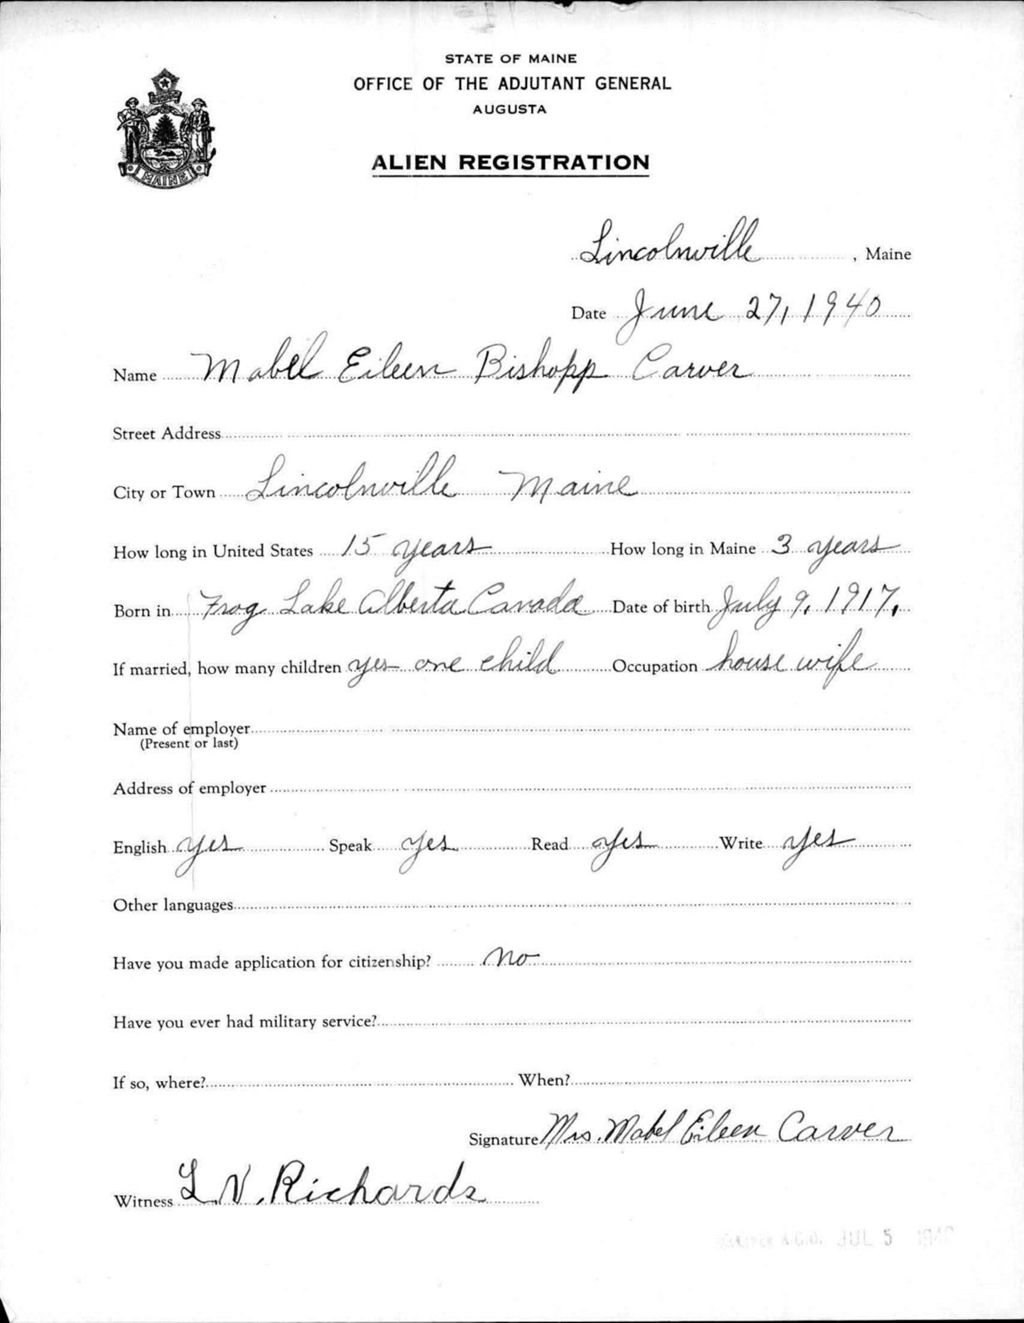 STATE OF MAINE
OFFICE OF THE ADJUTANT GENERAL
AUGUSTA
ALIEN REGISTRATION
MAINE
Lincolnville, Maine
Date June 27, 1940
Name Mabel Eileen Bishopp Carver
Street Address
City or Town Lincolnville Maine
How long in United States 15 years How long in Maine 3 years
Born in Frog Lake Alberta Canada Date of birth July 9, 1917,
If married, how many children yes one child Occupation house wife
Name of employer
(Present or last)
Address of employer
English yes Speak yes Read yes Write yes
Other languages
Have you made application for citizenship? no
Have you ever had military service?
If so, where? When?
Signature Mrs. Mabel Eileen Carver
Witness L.V. Richards
A.G.O. JUL 5 1940